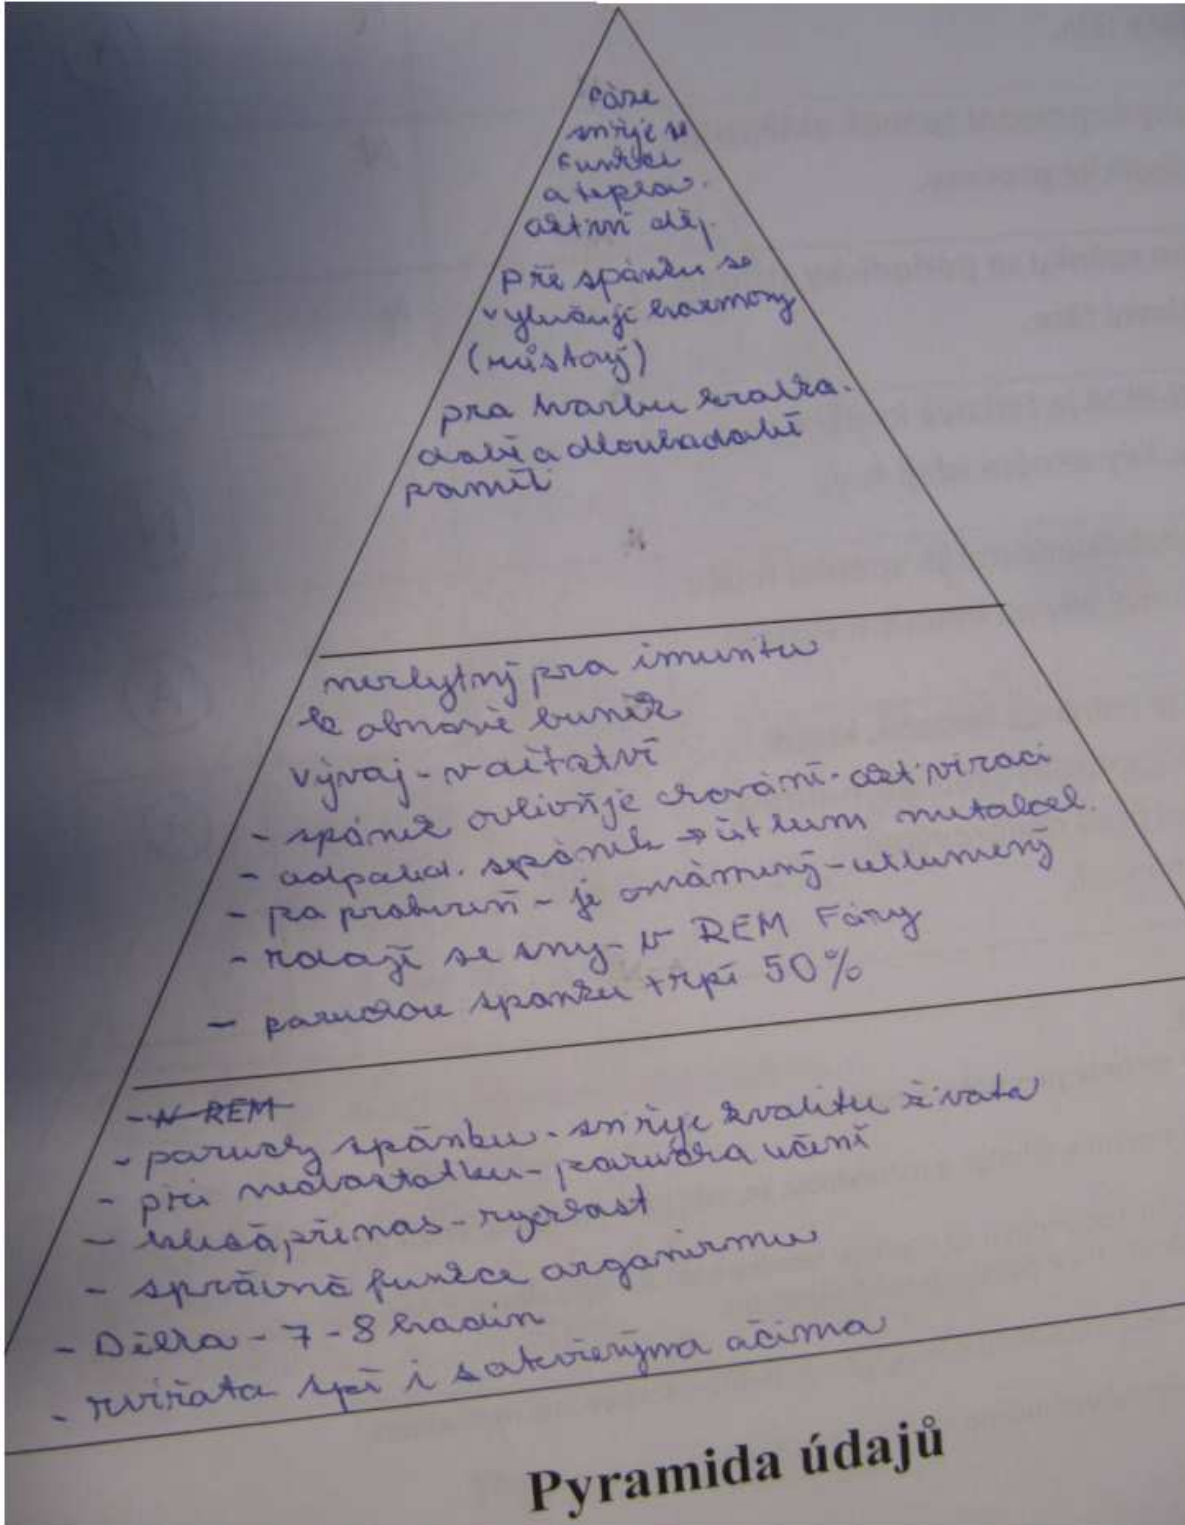 Fáze
snižuje se
Funkce
a teplo.
aktivní děj.
při spánku se
vylučují hormony
(růstový)
pro tvorbu krátko-
dobé a dlouhodobé
paměti
nezbytný pro imunitu
k obnově buněk
vývoj - v dětství
- spánek ovlivňuje chování -
- odpoled. spánek → útlum metabol.
- po probuzení - je omámený - utlumený
- zdají se sny - v REM Fázy
- poruchou spánku trpí 50%
- N-REM
- poruchy spánku - snižuje kvalitu života
- při nedostatku - porucha učení
- klesá přenos - rychlost
- správné funkce organizmu
- Délka - 7 - 8 hodin
- zvířata spí i s otevřenýma očima
Pyramida údajů